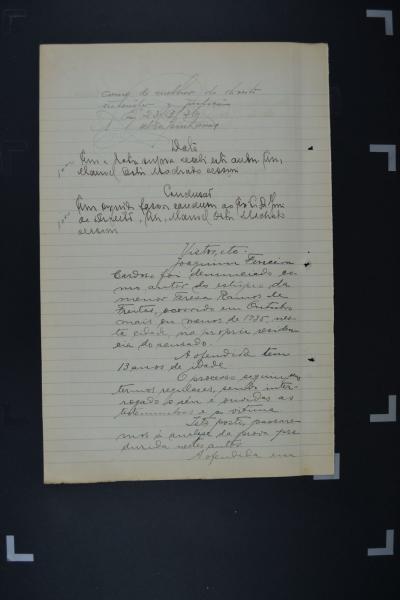 como de melhor de direito
entender e
Data
Em e data supra recebi este autos. Eu,
Manoel Machado escrivi
Conclusão
Em seguida faço conclusos ao Dr. Juiz
de Direito, Eu, Manoel Machado
escrivi
Vistos, etc.
Joaquim Ferreira
Cardoso foi denunciado co
mo autor do estupro da
menor Teresa Ramos de
Freitas, ocorrido em Outubro
mais ou menos de 1935, nes
ta cidade, na propria residen
cia do acusado.
A ofendida tem
13 anos de idade
O processo seguiu seus
termos regulares, sendo inter
rogado o réu e ouvidas as
testemunhas e a vitima
Isto posto, passare
mos à analise da prova pro
duzida nestes autos
A ofendida em